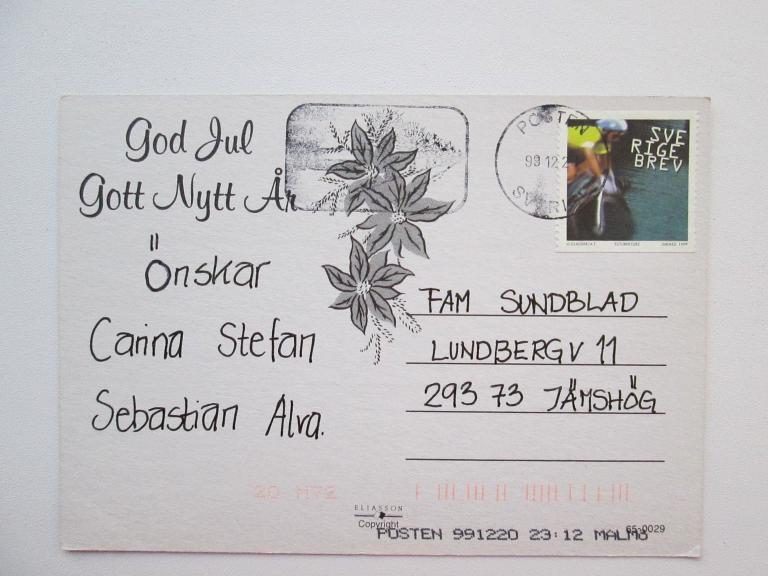 God Jul
Gott Nytt År
Önskar
Carina Stefan
Sebastian Alva.
POSTEN
99 12 2
SVERI
SVE
RIGE
BREV
FAM SUNDBLAD
LUNDBERGV 11
293 73 JÄMSHÖG
20 M72
ELIASSON
Copyright
65-0029
POSTEN 991220 23:12 MALMö